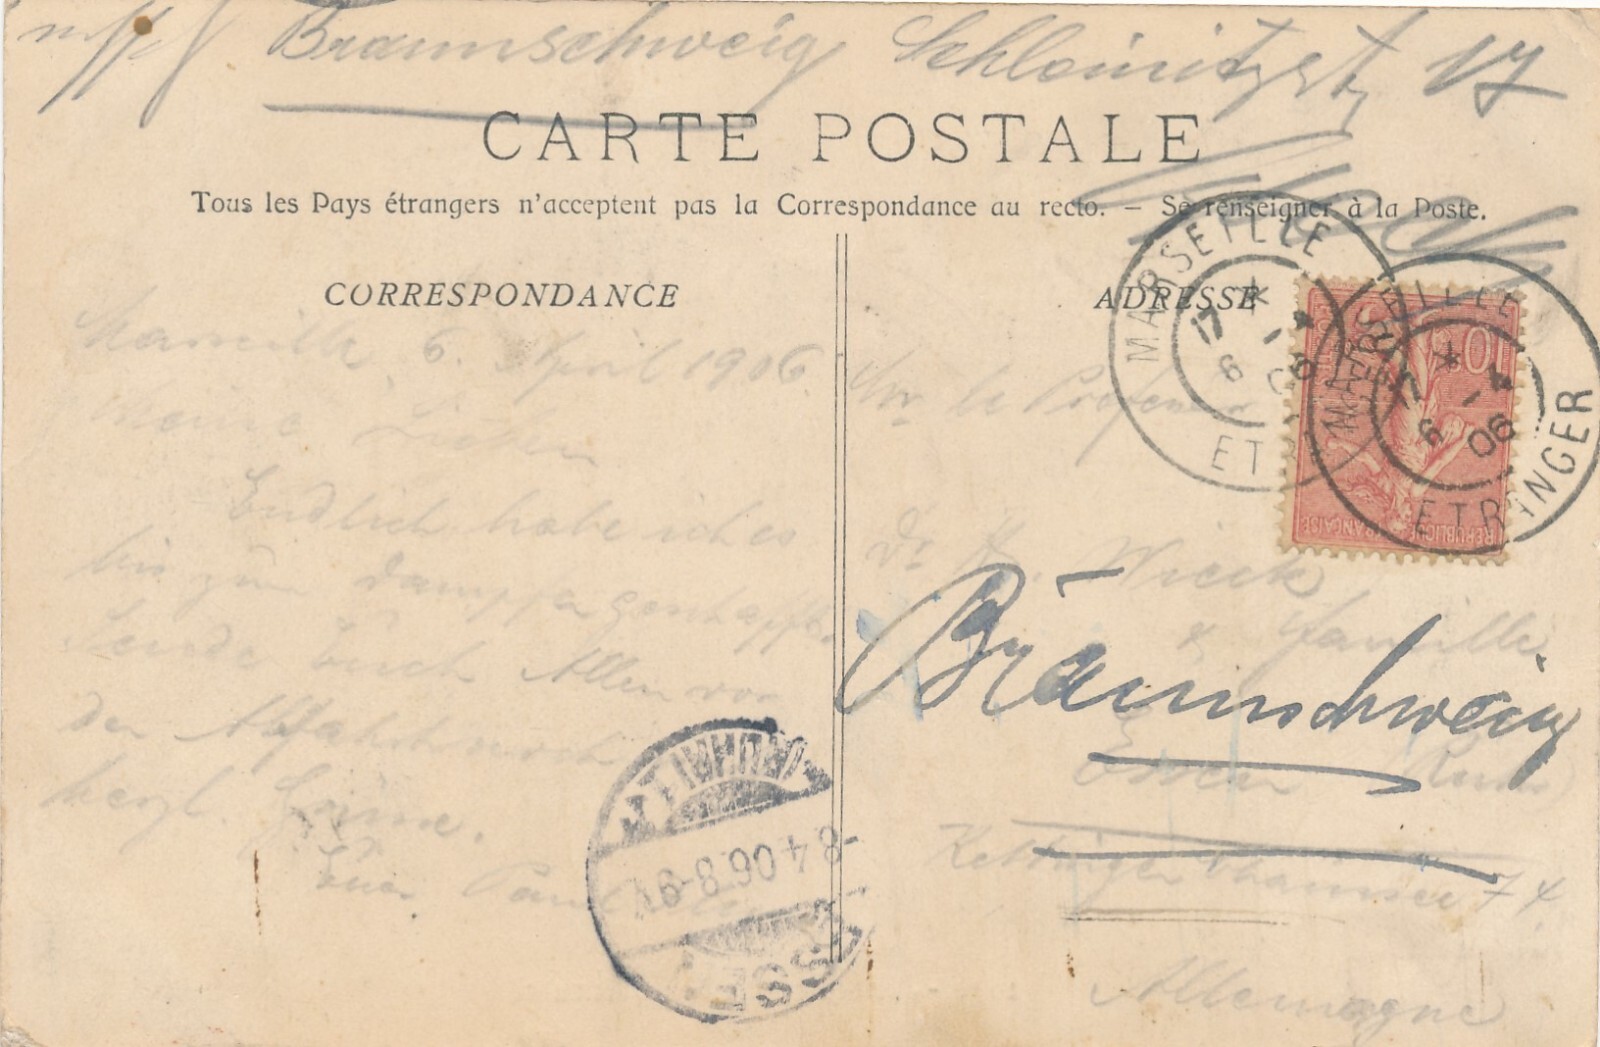 Braunschweig Schleinitzstr 17
CARTE POSTALE
Tous les Pays étrangers n'acceptent pas la Correspondance au recto. — Se renseigner à la Poste.
CORRESPONDANCE
Marseille 6. April 1906.
Meine Lieben
Endlich habe ich es
bis zum Dampfer geschafft.
Sende Euch Allen vor
der Abfahrt noch
herzl. Grüsse.
Euer Paul
ADRESSE
Mr le Professeur
Dr Wieck
& famille
Braunschweig
Essen (Ruhr)
Kettwiger Chaussee 74
Allemagne
MARSEILLE
ETRANGER
17
6
4
06
MARSEILLE
ETRANGER
17
6
4
06
10
REPUBLIQUE FRANÇAISE
8.4.06.8-9V.